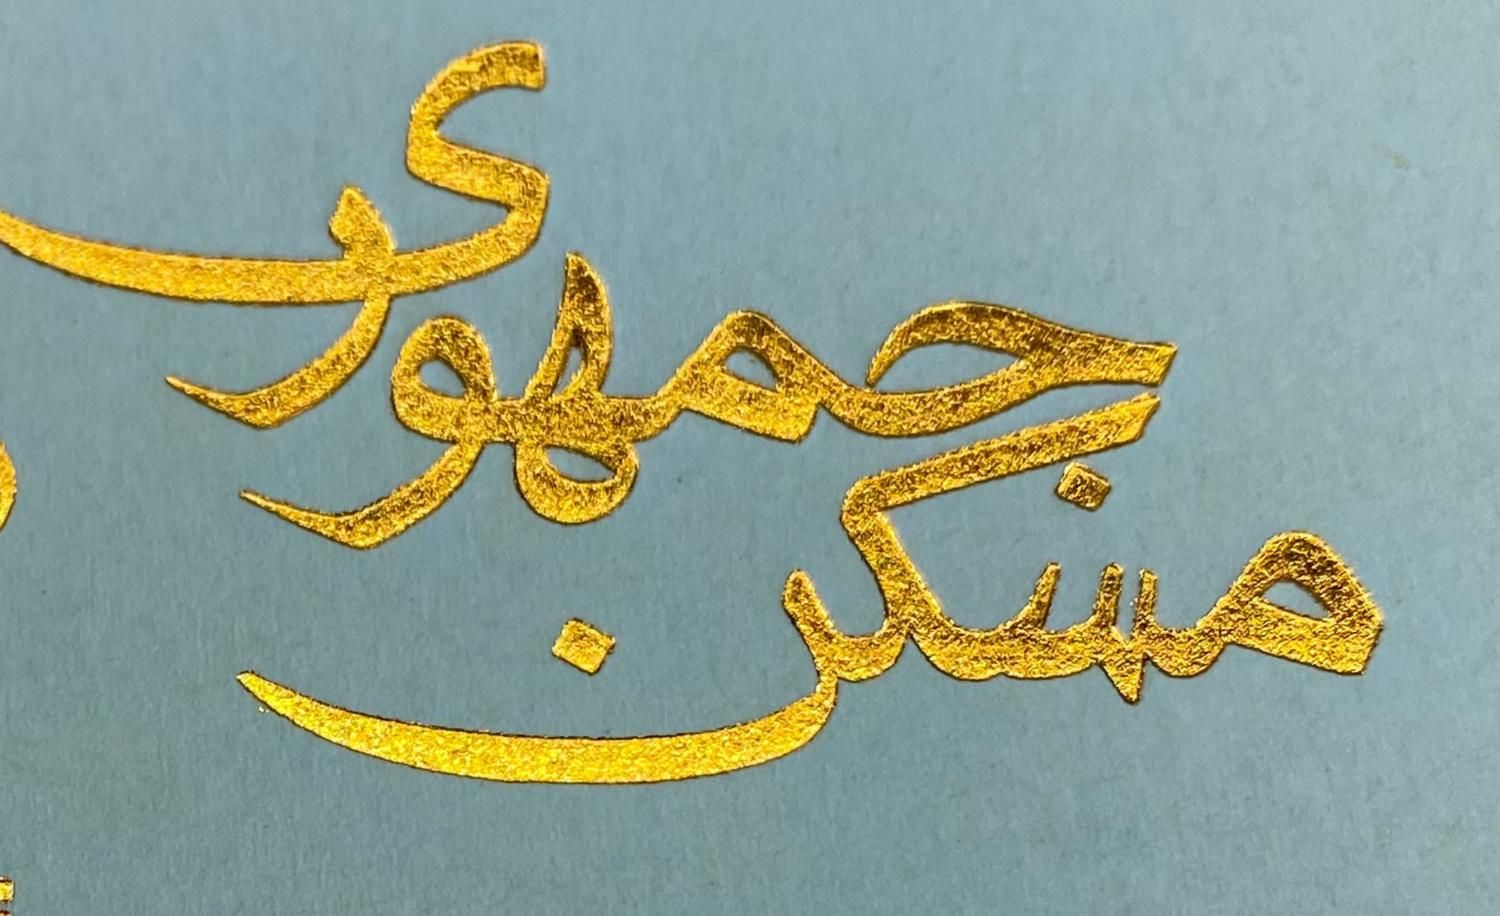 جمهوری
مسکن